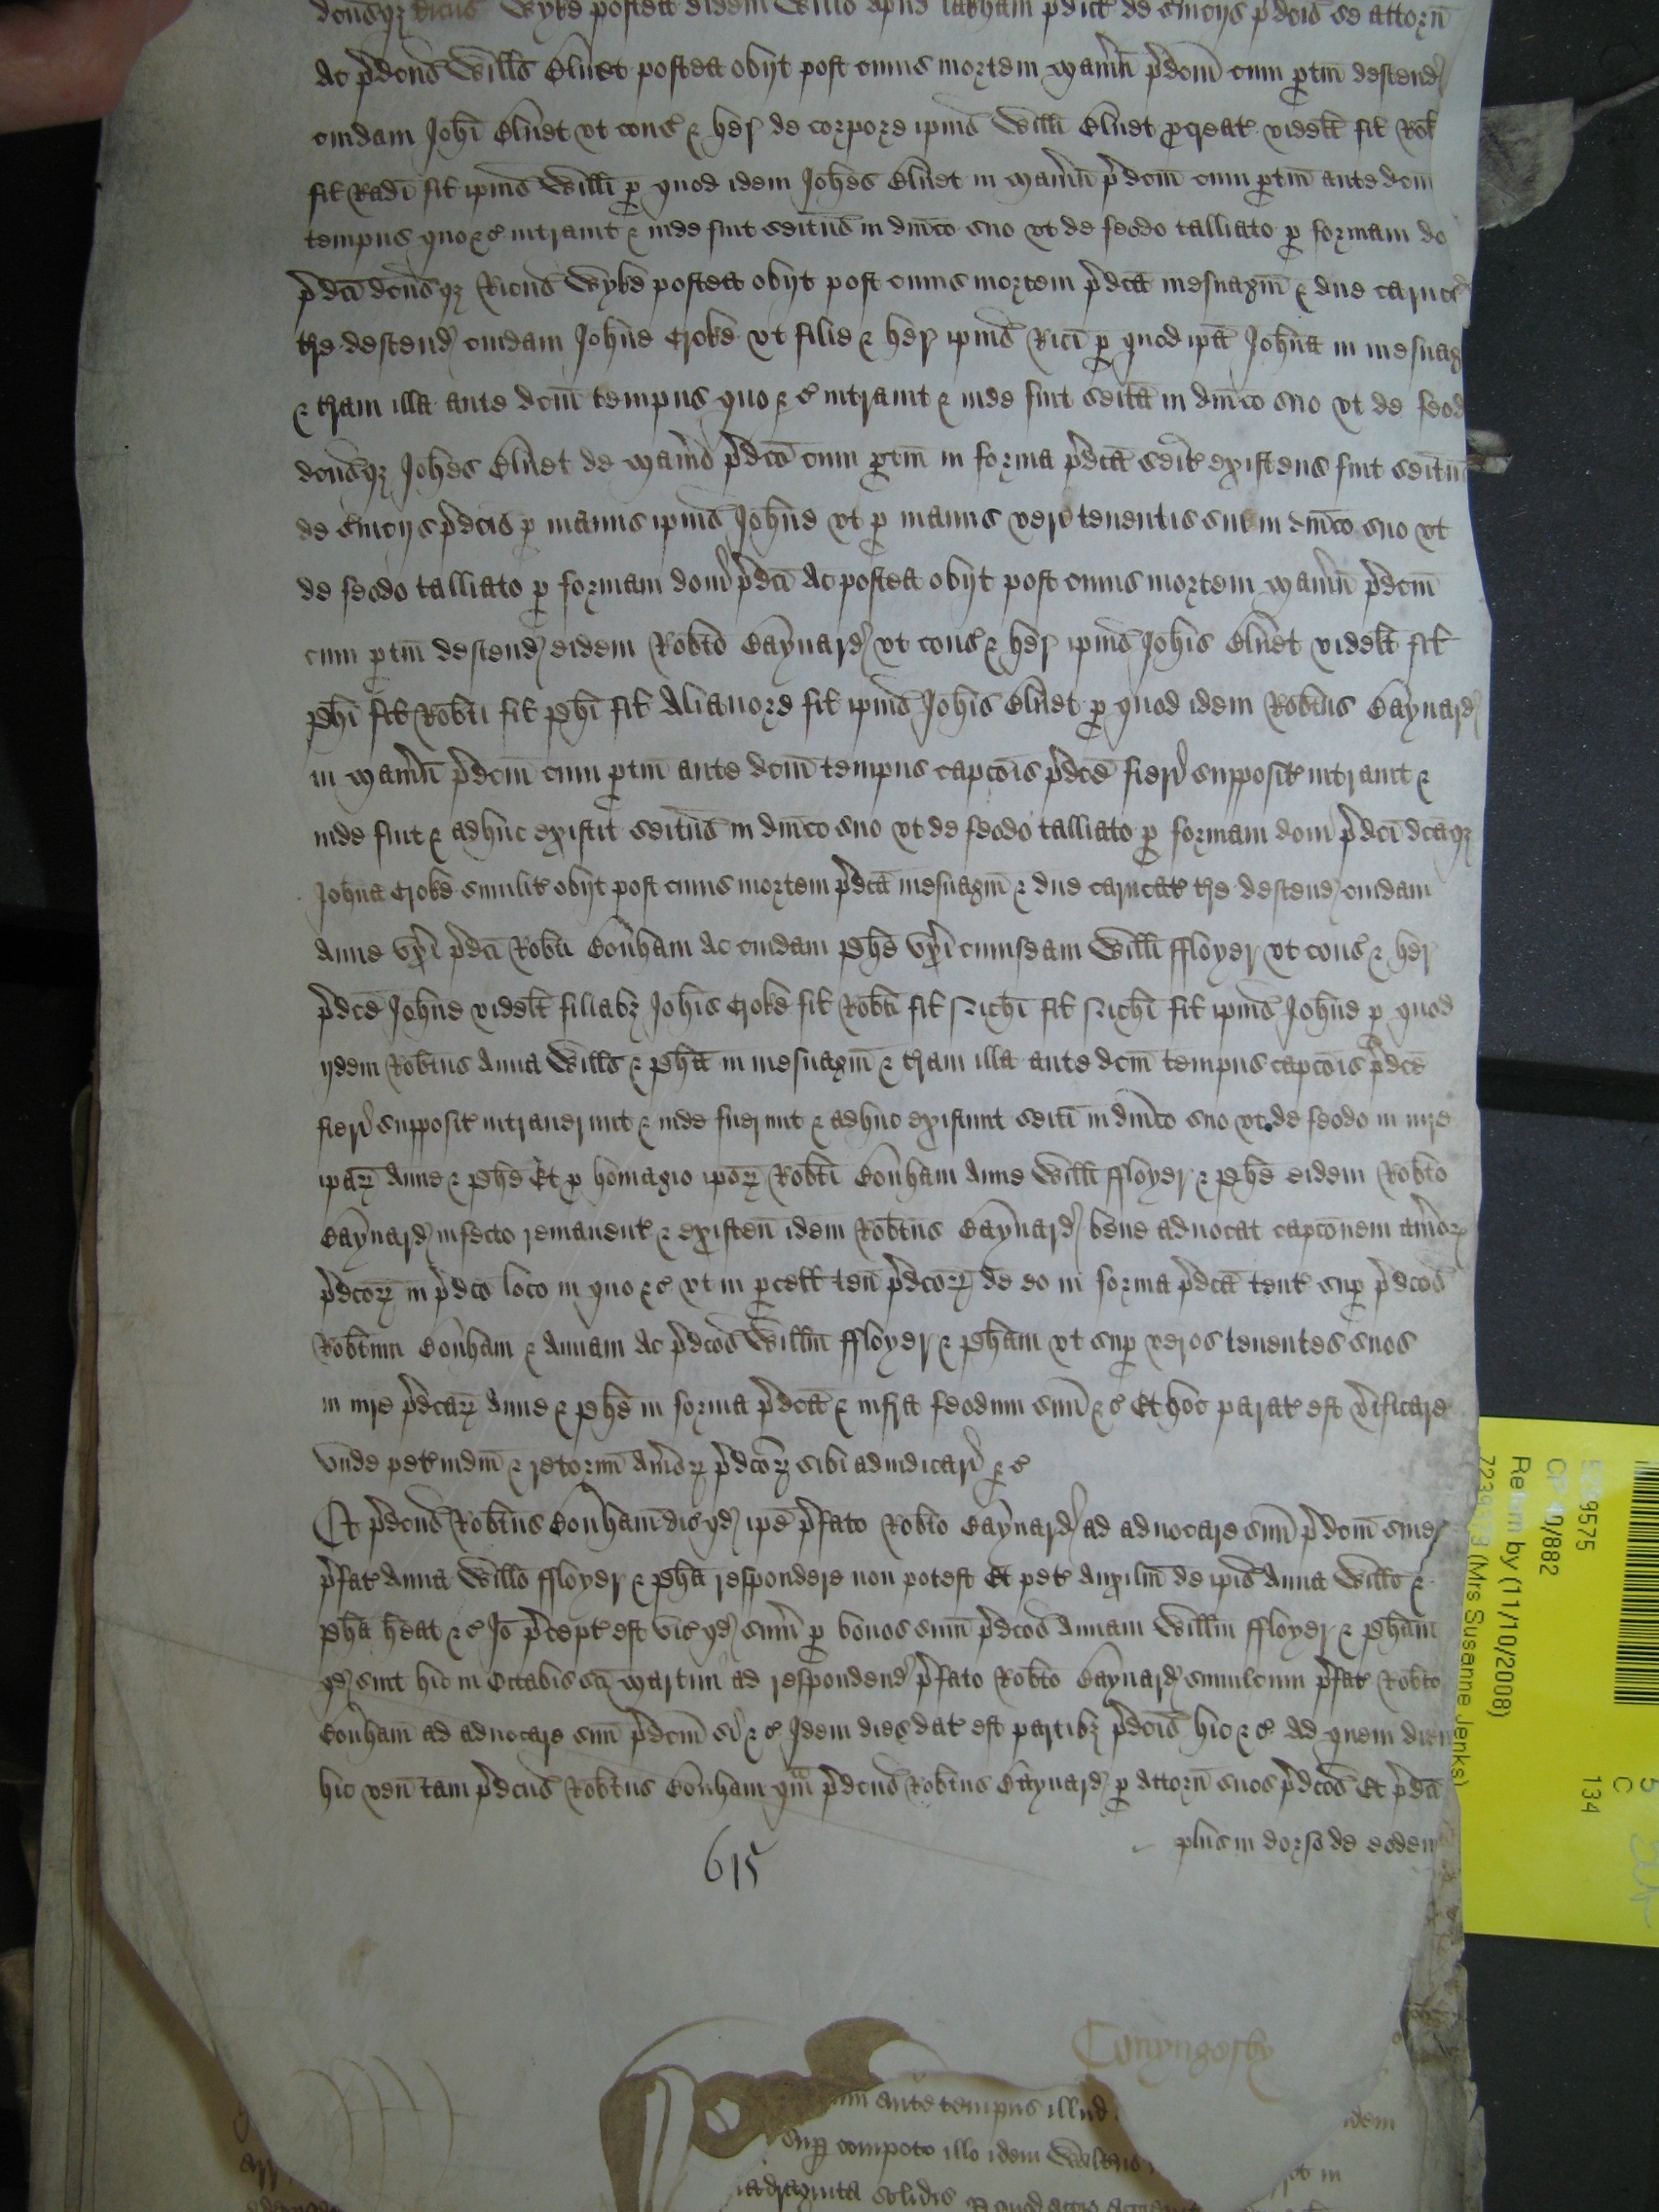 dcusq3 Ricus Wyke postea eidem Willo apud lakham p̄dict de s̄uicijs p̄dcis se attorn̄
Ac p̄dcus Wills Bluet postea obijt post cuius mortem Man̄iu p̄dcm̄ cum p̱tin̄ descend
cuidam Joh̄i Bluet vt cons̄ & her̄ de corpore ip̄ius Willi Bluet p̱creat videlt fit Rob̄
fit Rad̄i fit ip̄ius Willi p̱ quod idem Joh̄es Bluet in Man̄iu p̄dcm̄ cum p̱tin̄ ante dcm̄
tempus quo &c intrauit & inde fuit seit̄us in dn̄ico suo vt de feodo talliato p̱ formam do
p̄dci dcusq3 Ricus Wyke postea obijt post cuius mortem p̄dca mesuagiu & due carucat̄
t̄re descend cuidam Joh̄ne Croke vt filie & her̄ ip̄ius Ric̄i p̱ quod ip̄a Joh̄na in mesuag
& t̄ram illa ante dcm̄ tempus quo &c intrauit & inde fuit seit̄a in dn̄ico suo vt de feod
dcusq3 Joh̄es Bluet de Man̄io p̄dco cum p̱tin̄ in forma p̄dca seit̄ existens fuit seit̄us
de s̄uicijs p̄dcis p̱ manus ip̄ius Joh̄ne vt p̱ manus veri tenentis sui in dn̄ico suo vt
de feodo talliato p̱ formam doni p̄dci Ac postea obijt post cuius mortem Man̄iu p̄dcm̄
cum p̱tin̄ descend eidem Rob̄to Baynard vt cons̄ & her̄ ip̄ius Joh̄is Bluet videlt fit
Ph̄i fit Rob̄ti fit Ph̄i fit Alianore fit ip̄ius Joh̄is Bluet p̱ quod idem Rob̄tus Baynard
in Man̄iu p̄dcm̄ cum p̱tin̄ ante dcm̄ tempus capc̄ois p̄dce fieri supposit̄ intrauit &
inde fuit & adhuc existit seit̄us in dn̄ico suo vt de feodo talliato p̱ formam doni p̄dci dcaq3
Joh̄na Croke similit̄ obijt post cuius mortem p̄dca mesuagiu & due carucat̄ t̄re descend cuidam
Anne vx̄i p̄dci Rob̄ti Bonham Ac cuidam Ph̄e vx̄i cuiusdam Willi ffloyer vt cons̄ & her̄
p̄dce Joh̄ne videlt filiab3 Joh̄is Croke fit Rob̄ti fit Nich̄i fit Nich̄i fit ip̄ius Joh̄ne p̱ quod
ijdem Rob̄tus Anna Wills & Ph̄a in mesuagiu & t̄ram illa ante dcm̄ tempus capc̄ois p̄dce
fieri supposit̄ intrauerunt & inde fuerunt & adhuc existunt seit̄i in dn̄ico suo vt de feodo in iure
ip̄ar̄ Anne & Ph̄e Et p̱ homagio ip̄or̄ Rob̄ti Bonham Anne Willi ffloyer & Ph̄e eidem Rob̄to
Baynard infecto remanent̄ & existen̄ idem Rob̄tus Baynard bene aduocat capc̄onem aūior̄
p̄dcor̄ in p̄dco loco in quo &c vt in p̱cell ten̄ p̄dcor̄ de eo in forma p̄dca tent̄ sup̱ p̄dcos
Rob̄tum Bonham & Annam Ac p̄dcos Willm̄ ffloyer & Ph̄am vt sup̱ veros tenentes suos
in iure p̄dcar̄ Anne & Ph̄e in forma p̄dca & infra feodum suu &c Et hoc parat̄ est v̄ificare
Vnde pet̄ iudm̄ & retorn̄ aūior̄ p̄dcor̄ sibi adiudicari &c
Et p̄dcus Rob̄tus Bonham dic̄ qd ip̄e p̄fato Rob̄to Baynard ad aduocare suu p̄dcm̄ sine
p̄fat̄ Anna Willo ffloyer & Ph̄a respondere non potest Et pet̄ auxiliu de ip̄is Anna Willo &
Ph̄a h̄eat &c Jo p̄cept̄ est vic̄ qd sum̄ p̱ bonos sum̄ p̄dcos Annam Willm̄ ffloyer & Ph̄am
qd sint hic in Octabis sc̄i Martini ad respondend p̄fato Rob̄to Baynard simulcum p̄fat̄ Rob̄to
Bonham ad aduocare suu p̄dcm̄ si &c Idem dies dat̄ est partib3 p̄dcis hic &c Ad quem diem
hic ven̄ tam p̄dcus Rob̄tus Bonham qm̄ p̄dcus Rob̄tus Baynard p̱ Attorn̄ suos p̄dcos Et p̄dca
plus in dorso de eodem
615
Conyngesby
ante tempus illud
sup̱ compoto illo idem Walt̄us
solidis
idem
5299575
CP 40/882
Return by (11/10/2008)
7239373 (Mrs Susanne Jenks)
134
C
5